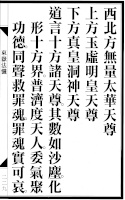 西北方無量太華天尊
上方玉虛明皇天尊
下方真皇洞神天尊
道言十方諸天尊其數如沙塵化
形十方界普濟度天人委氣聚
功德同聲救罪魂罪魂實可哀